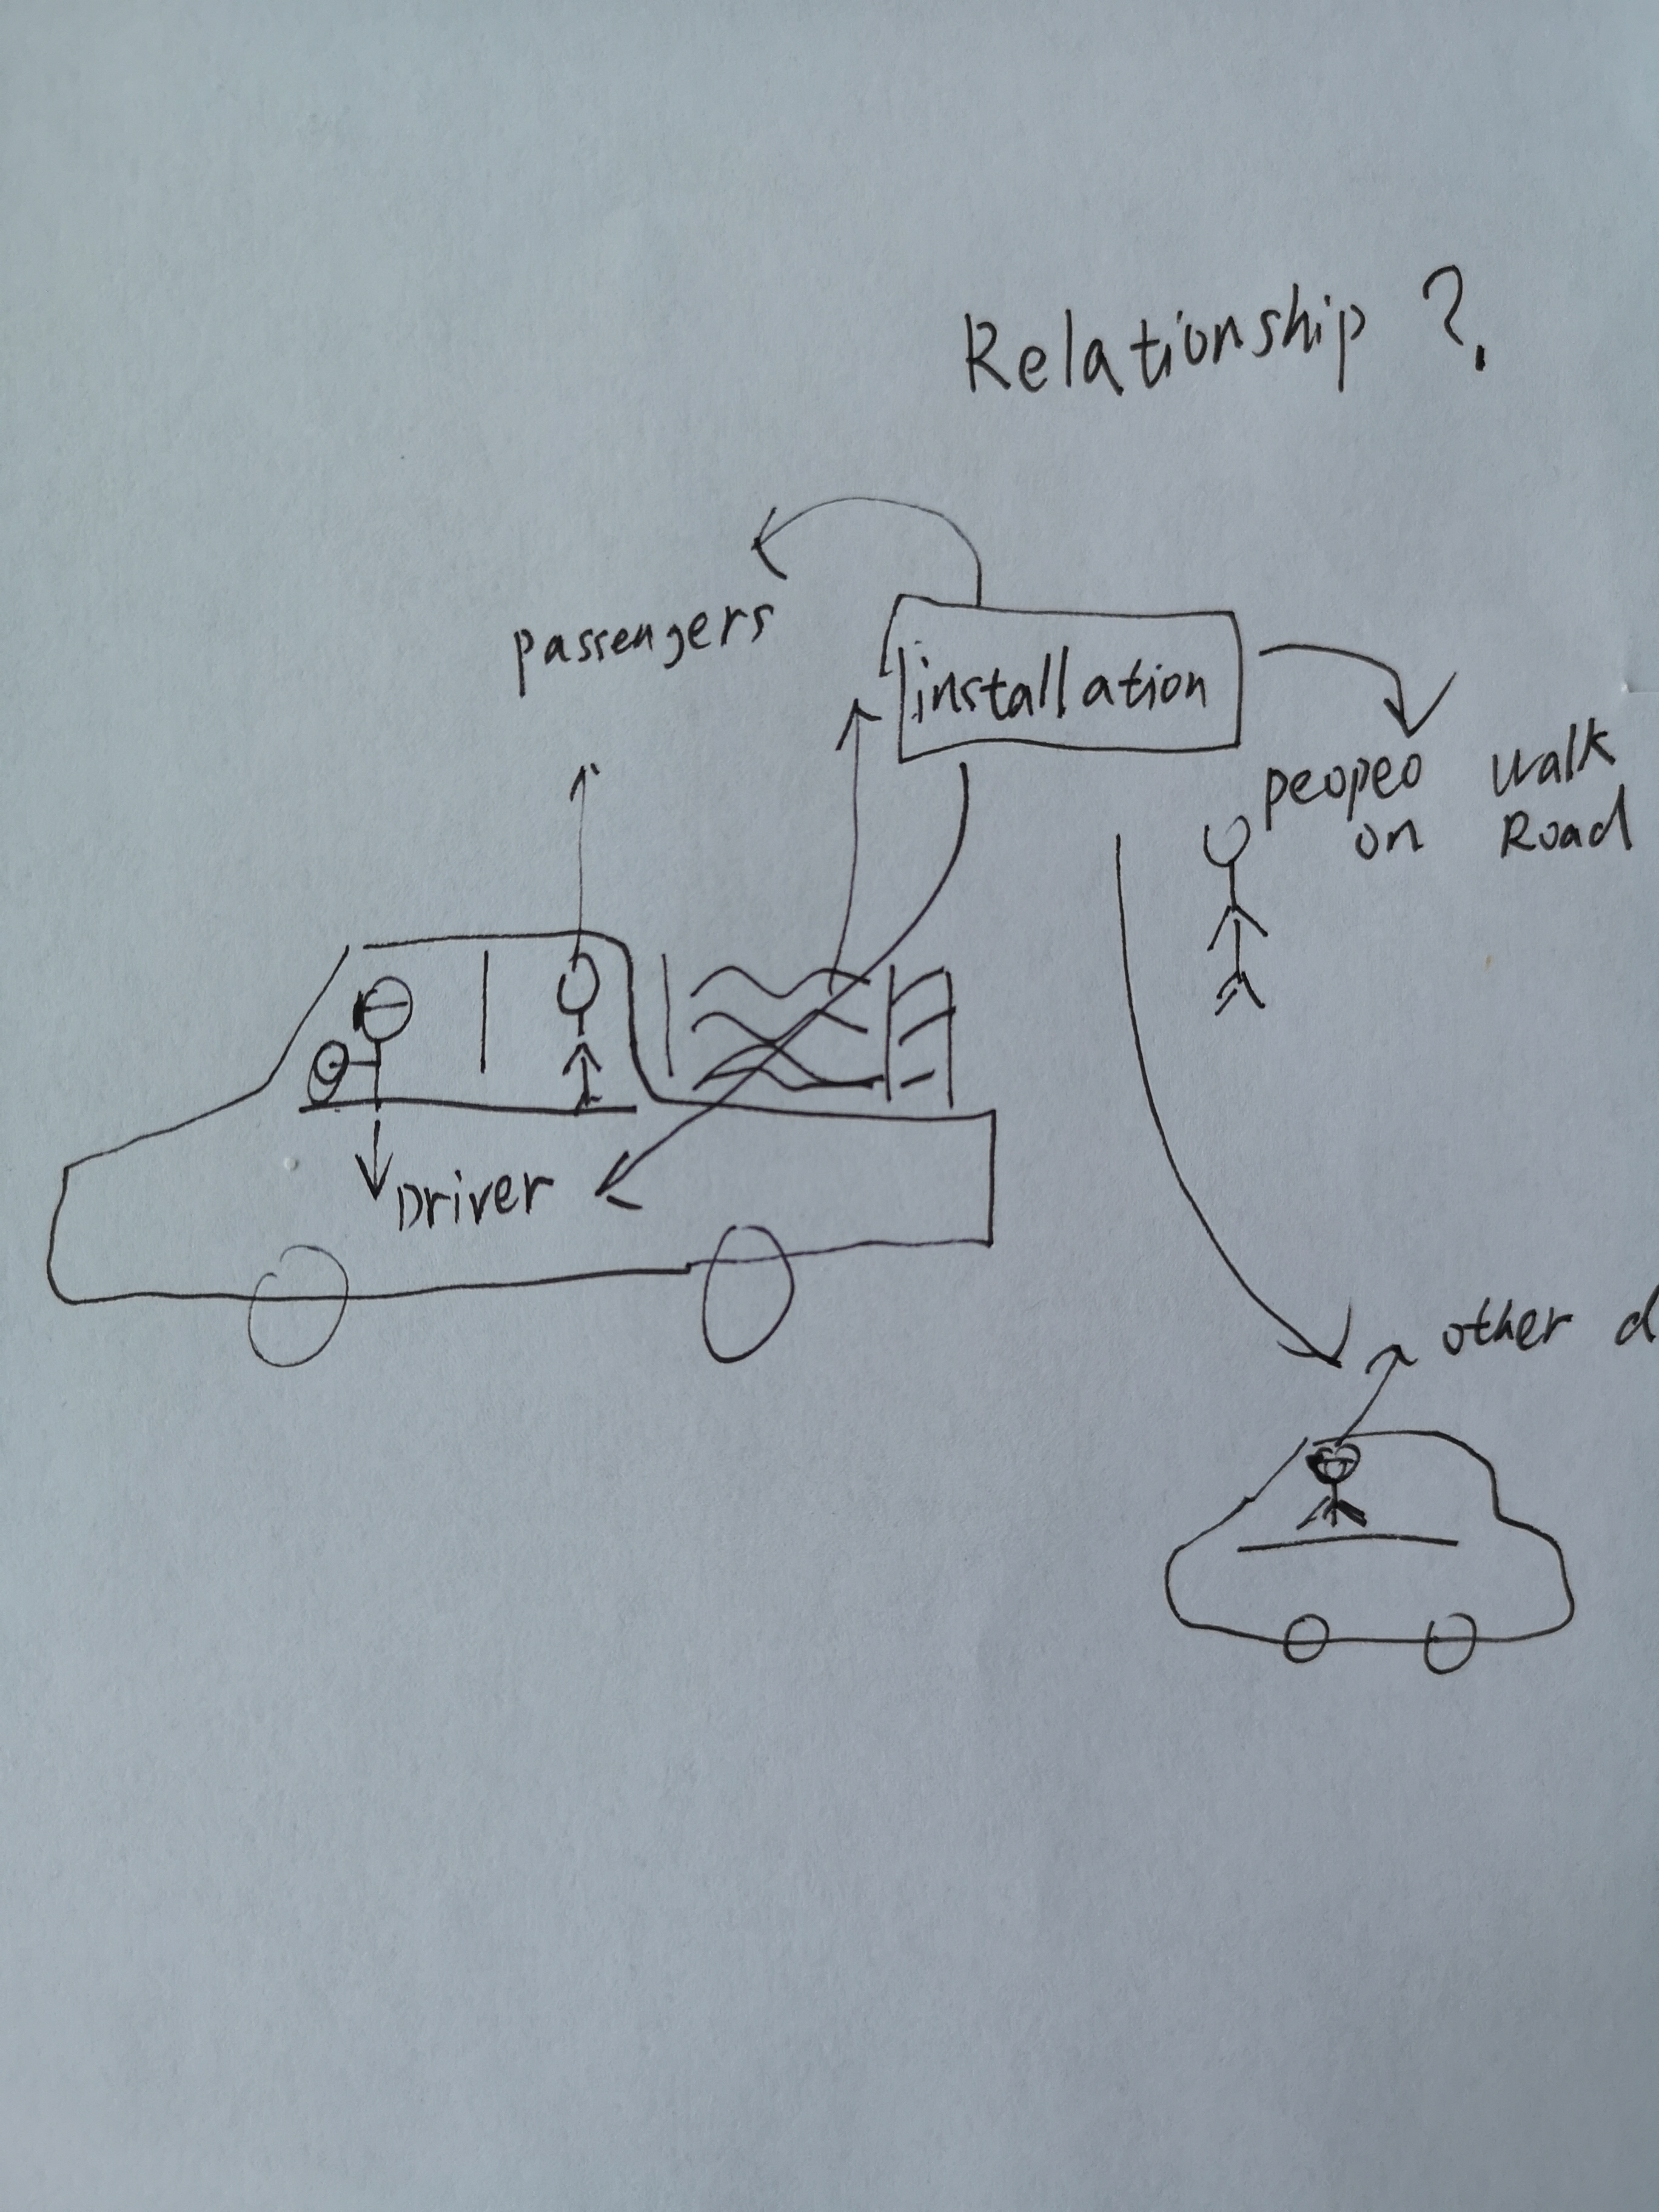 Relationship ?
passengers
installation
peopeo walk
on Road
Driver
other d